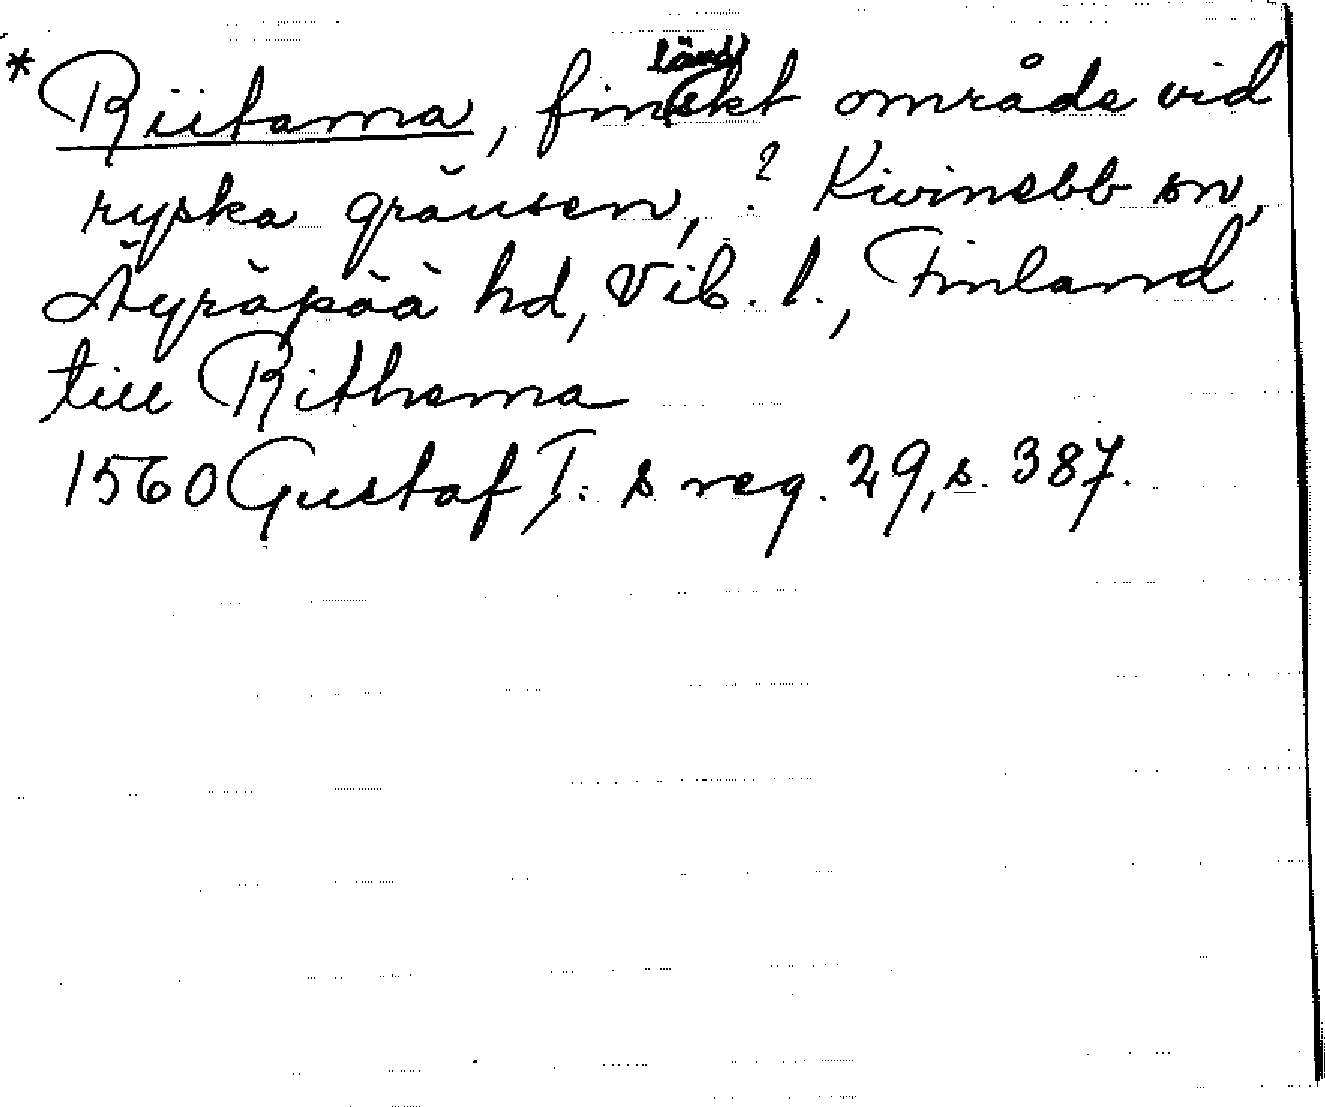 * Riitama, finländskt område vid
ryska gränsen, ? Kivinebb sn,
Äyräpää hd, Vib. l., Finland
till Rithama
1560 Gustaf I:s reg. 29, s. 387.